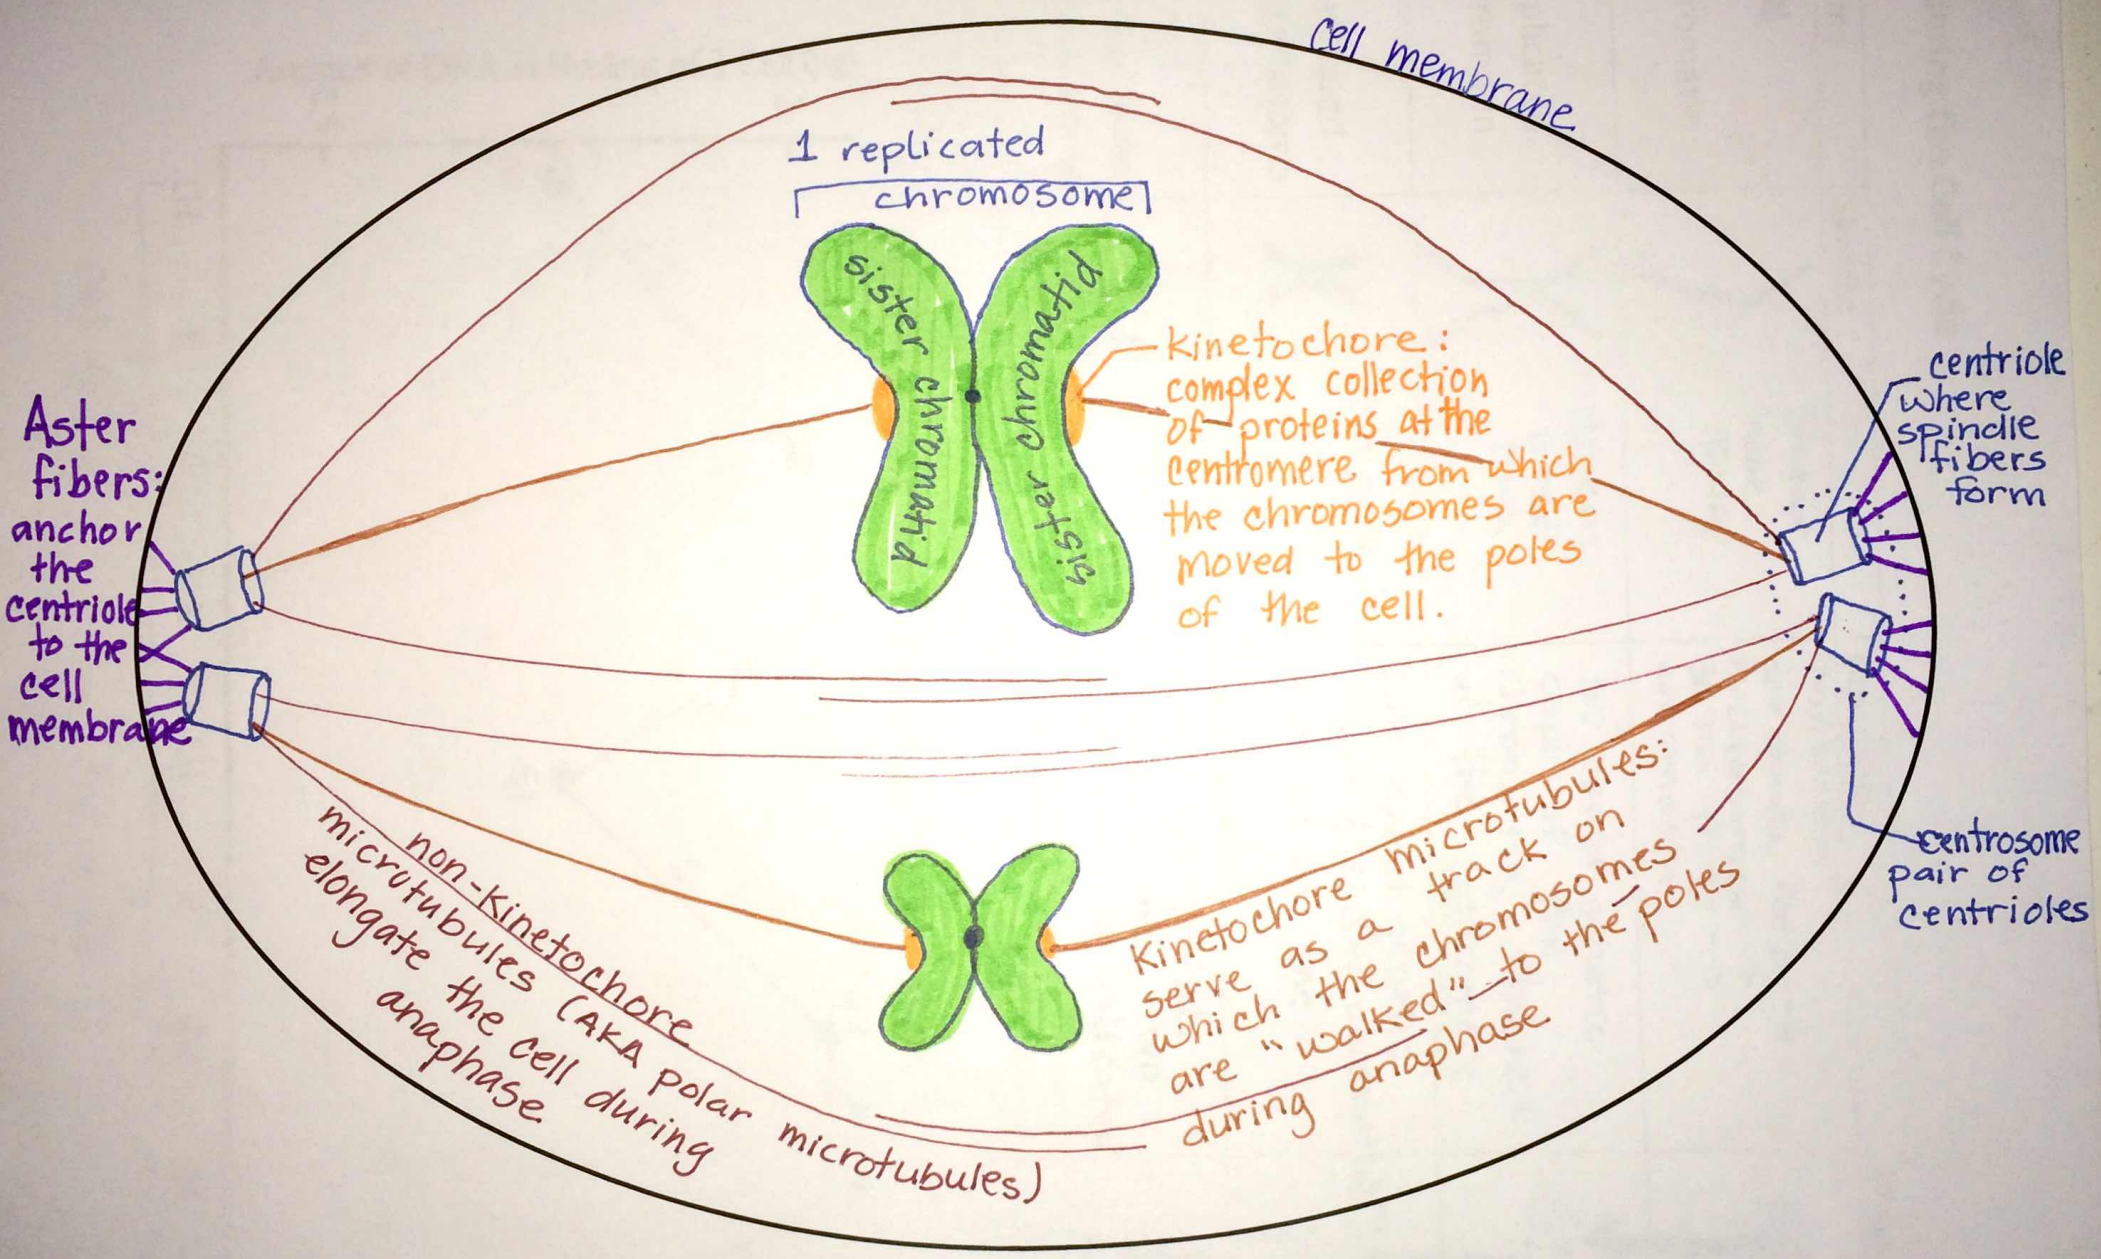 cell membrane
1 replicated
chromosome
sister chromatid
sister chromatid
kinetochore:
complex collection
of proteins at the
centromere from which
the chromosomes are
moved to the poles
of the cell.
centriole
where
spindle
fibers
form
Aster
fibers:
anchor
the
centriole
to the
cell
membrane
centrosome
pair of
centrioles
non-kinetochore
microtubules (AKA polar microtubules)
elongate the cell during
anaphase
Kinetochore microtubules:
serve as a track on
which the chromosomes
are "walked" to the poles
during anaphase